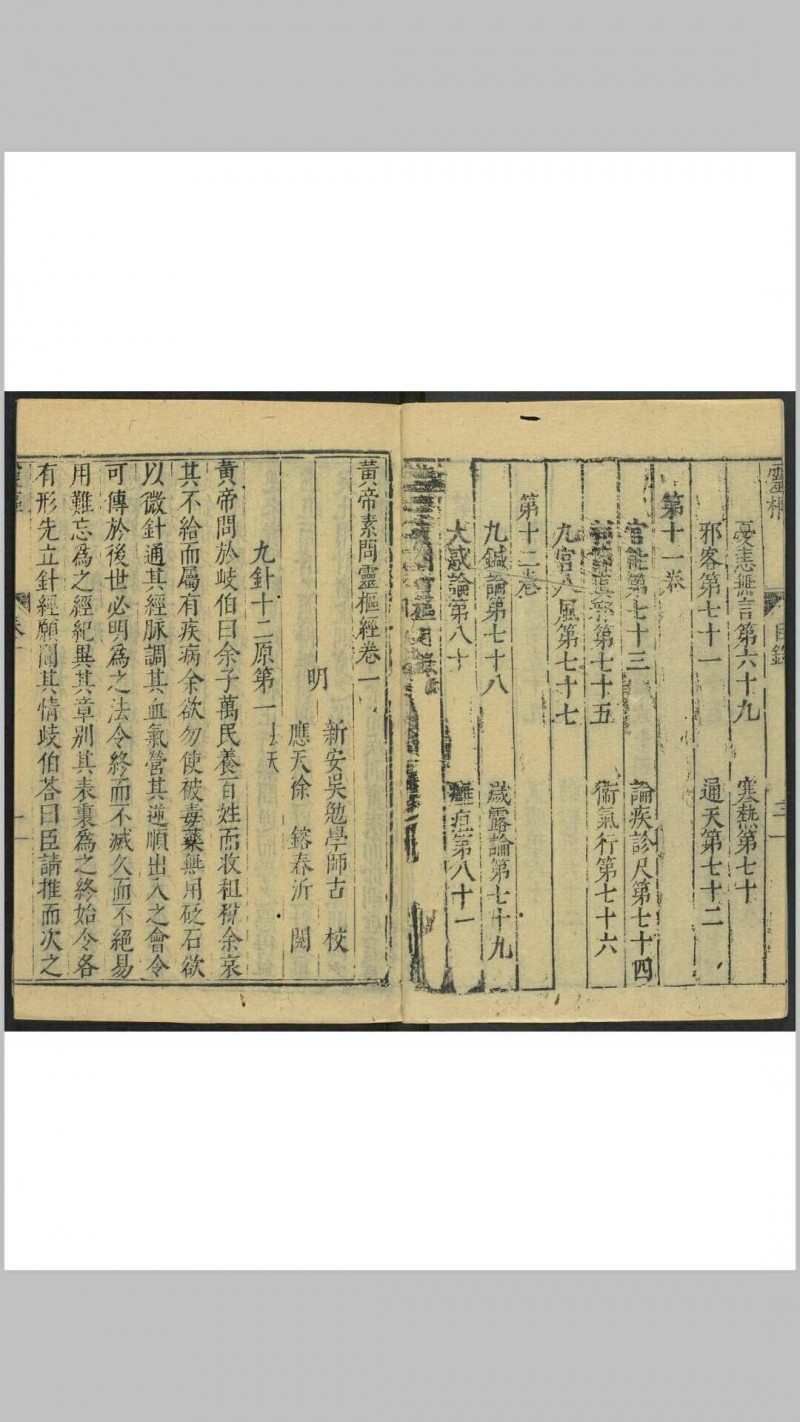 靈樞
目錄
三
憂恚無言第六十九 寒熱第七十
邪客第七十一 通天第七十二
第十一卷
官能第七十三 論疾診尺第七十四
第七十五 衞氣行第七十六
九宮八風第七十七
第十二卷
九鍼論第七十八 歲露論第七十九
大惑論第八十 癰疽第八十一
樞目錄
黃帝素問靈樞經卷一
明 新安吳勉學師古 校
應天徐 鎔春沂 閱
九針十二原第一 法天
黃帝問於岐伯曰余子萬民養百姓而收租稅余哀
其不給而屬有疾病余欲勿使被毒藥無用砭石欲
以微針通其經脉調其血氣營其逆順出入之會令
可傳於後世必明爲之法令終而不滅久而不絕易
用難忘爲之經紀異其章別其表裏爲之終始令各
有形先立針經願聞其情歧伯荅曰臣請推而次之
靈樞
卷一
一